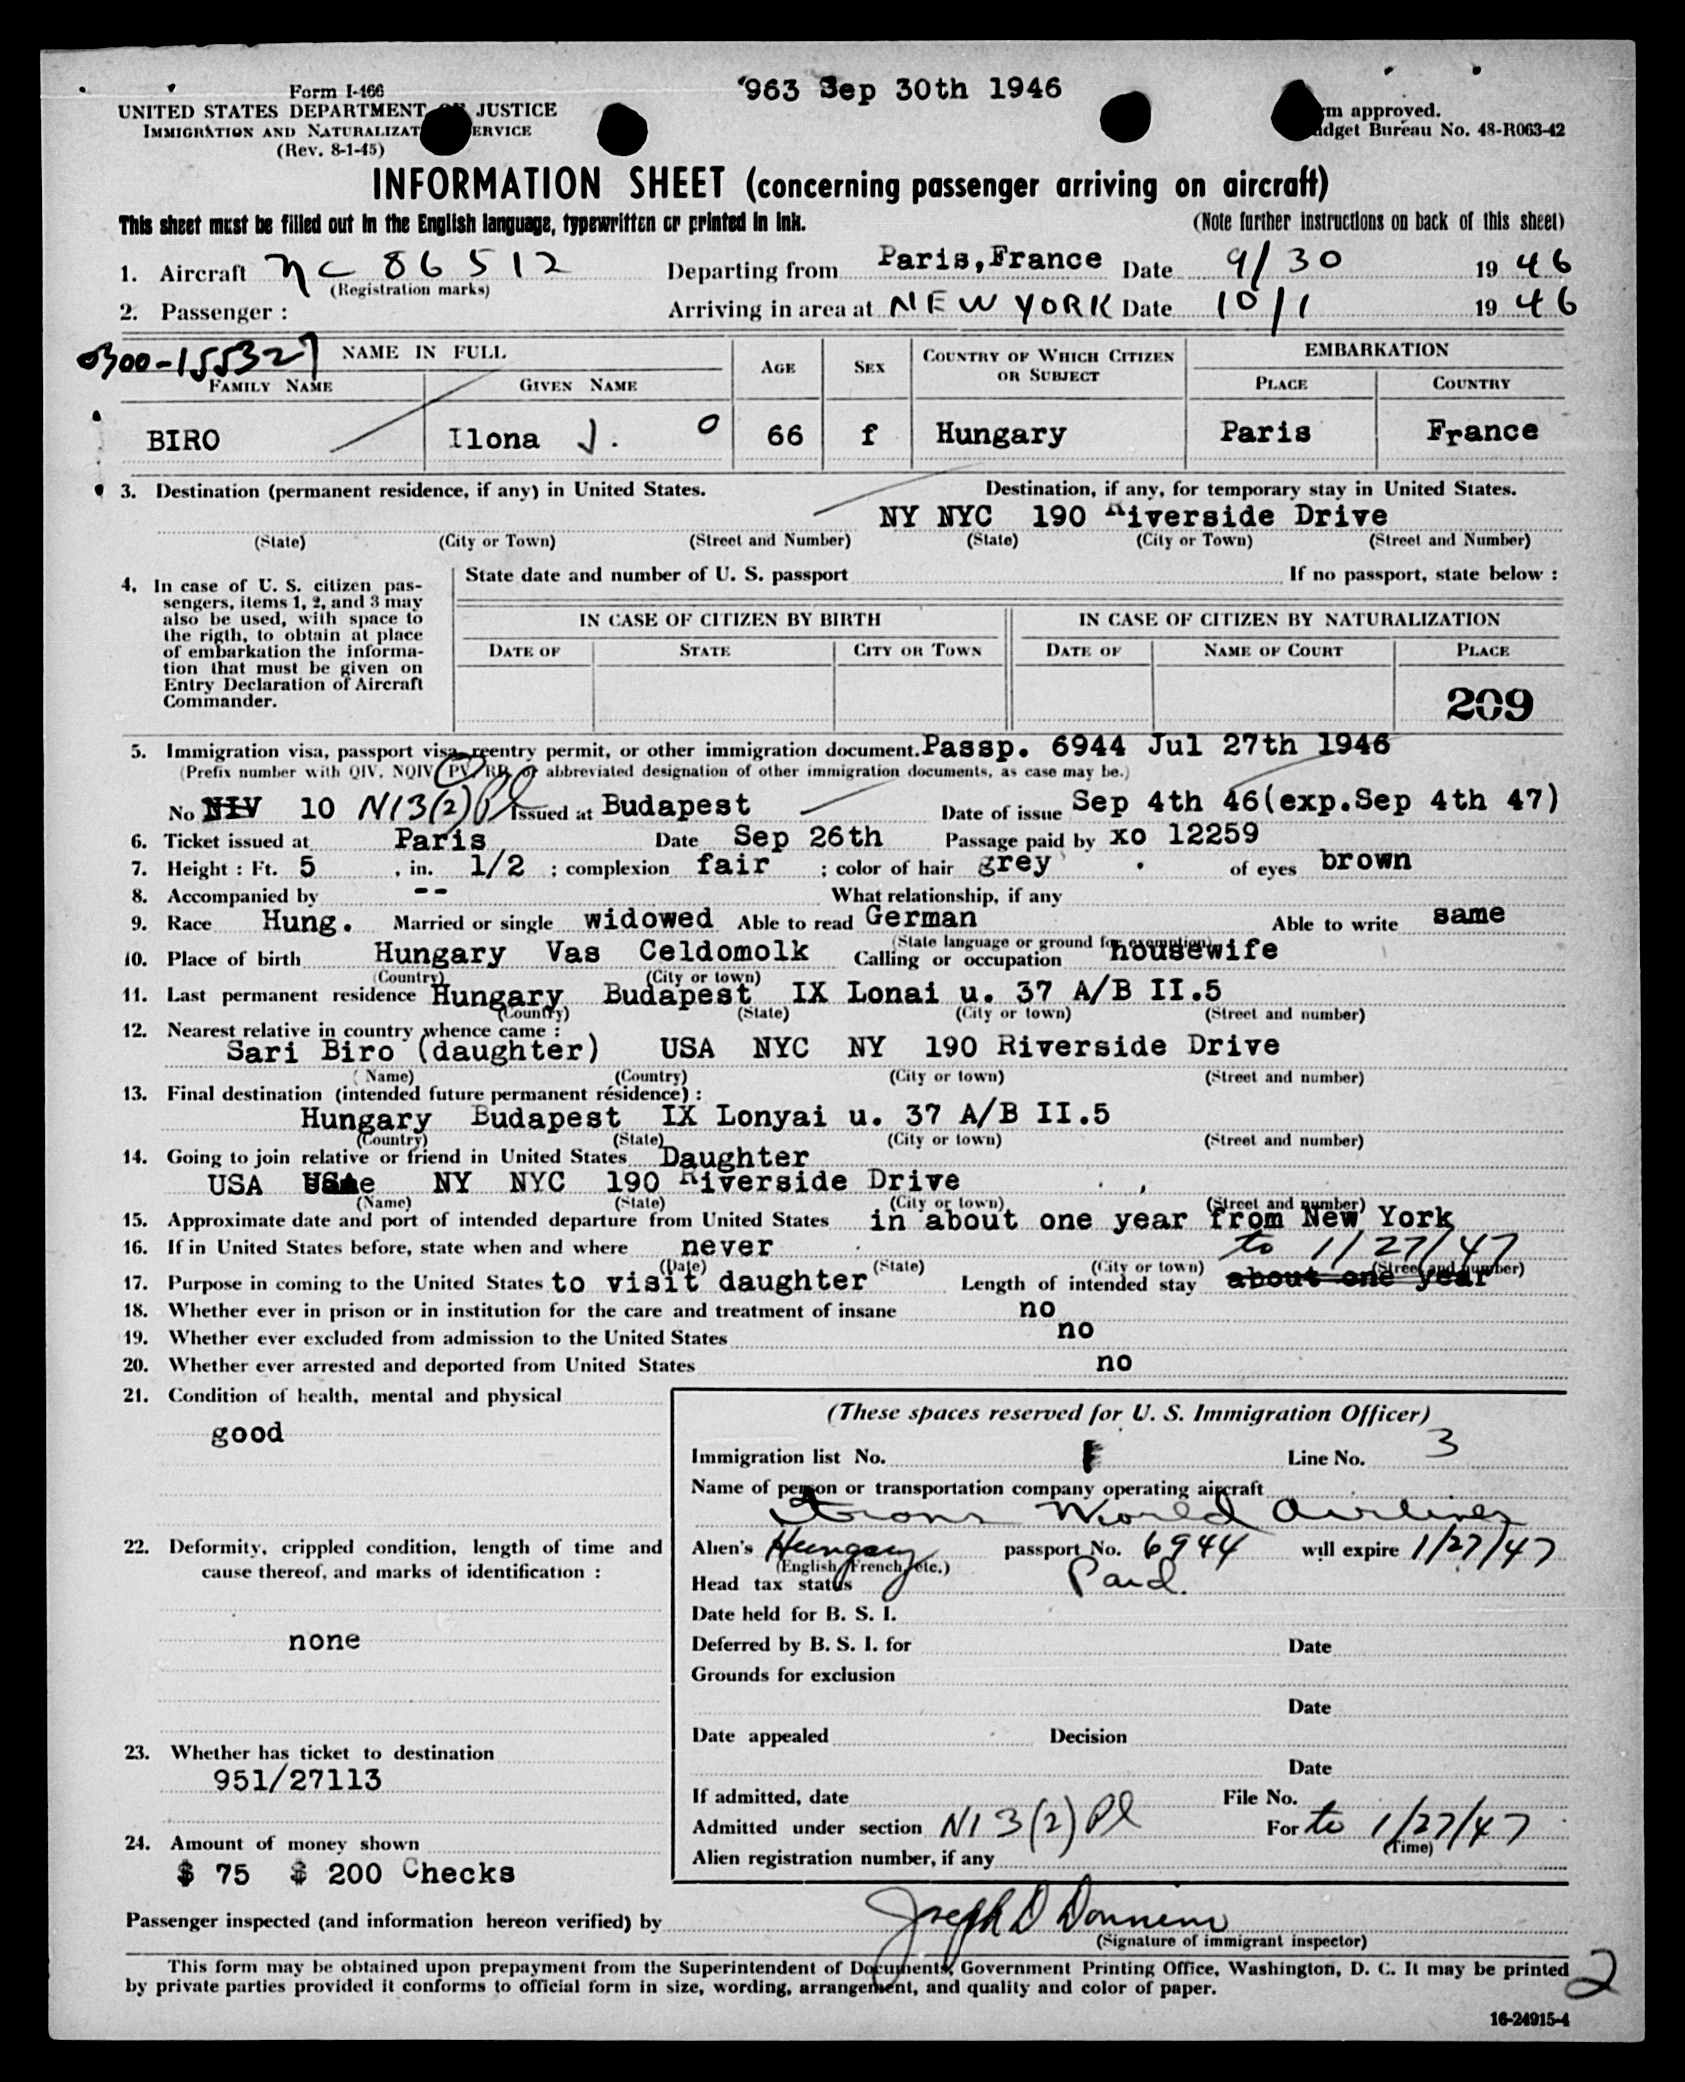 Form I-466
'963 Sep 30th 1946
UNITED STATES DEPARTMENT OF JUSTICE
IMMIGRATION AND NATURALIZATION SERVICE
(Rev. 8-1-45)
Form approved.
Budget Bureau No. 48-R063-42
INFORMATION SHEET (concerning passenger arriving on aircraft)
This sheet must be filled out in the English language, typewritten or printed in ink.
(Note further instructions on back of this sheet)
1. Aircraft NC 86512 Departing from Paris,France Date 9/30 1946
(Registration marks)
2. Passenger : Arriving in area at NEW YORK Date 10/1 1946
0300-155327
NAME IN FULL AGE SEX COUNTRY OF WHICH CITIZEN OR SUBJECT EMBARKATION
FAMILY NAME GIVEN NAME PLACE COUNTRY
BIRO Ilona J. 0 66 f Hungary Paris France
3. Destination (permanent residence, if any) in United States. Destination, if any, for temporary stay in United States.
NY NYC 190 Riverside Drive
(State) (City or Town) (Street and Number) (State) (City or Town) (Street and Number)
4. In case of U. S. citizen pas-
sengers, items 1, 2, and 3 may
also be used, with space to
the rigth, to obtain at place
of embarkation the informa-
tion that must be given on
Entry Declaration of Aircraft
Commander.
State date and number of U. S. passport If no passport, state below :
IN CASE OF CITIZEN BY BIRTH IN CASE OF CITIZEN BY NATURALIZATION
DATE OF STATE CITY OR TOWN DATE OF NAME OF COURT PLACE
209
5. Immigration visa, passport visa, reentry permit, or other immigration document. Passp. 6944 Jul 27th 1946
(Prefix number with QIV, NQIV, PV, RP, or abbreviated designation of other immigration documents, as case may be.)
No NIV 10 NI3(2)Pl Issued at Budapest Date of issue Sep 4th 46(exp.Sep 4th 47)
6. Ticket issued at Paris Date Sep 26th Passage paid by xo 12259
7. Height : Ft. 5 , in. 1/2 ; complexion fair ; color of hair grey of eyes brown
8. Accompanied by -- What relationship, if any
9. Race Hung. Married or single widowed Able to read German Able to write same
(State language or ground for exemption)
10. Place of birth Hungary Vas Celdomolk Calling or occupation housewife
(Country) (City or town)
11. Last permanent residence Hungary Budapest IX Lonai u. 37 A/B II.5
(Country) (State) (City or town) (Street and number)
12. Nearest relative in country whence came :
Sari Biro (daughter) USA NYC NY 190 Riverside Drive
(Name) (Country) (City or town) (Street and number)
13. Final destination (intended future permanent résidence) :
Hungary Budapest IX Lonyai u. 37 A/B II.5
(Country) (State) (City or town) (Street and number)
14. Going to join relative or friend in United States Daughter
USA NY NYC 190 Riverside Drive
(Name) (State) (City or town) (Street and number)
15. Approximate date and port of intended departure from United States in about one year from New York
16. If in United States before, state when and where never to 1/27/47
(Date) (State) (City or town) (Street and number)
17. Purpose in coming to the United States to visit daughter Length of intended stay about one year
18. Whether ever in prison or in institution for the care and treatment of insane no
19. Whether ever excluded from admission to the United States no
20. Whether ever arrested and deported from United States no
21. Condition of health, mental and physical
good
22. Deformity, crippled condition, length of time and
cause thereof, and marks of identification :
none
23. Whether has ticket to destination
951/27113
24. Amount of money shown
$ 75 $ 200 Checks
(These spaces reserved for U. S. Immigration Officer)
Immigration list No. F Line No. 3
Name of person or transportation company operating aircraft
Trans World Airlines
Alien's Hungary passport No. 6944 will expire 1/27/47
(English, French, etc.)
Head tax status Paid.
Date held for B. S. I.
Deferred by B. S. I. for Date
Grounds for exclusion
Date
Date appealed Decision
Date
If admitted, date File No.
Admitted under section NI 3(2) Pl For to 1/27/47
(Time)
Alien registration number, if any
Passenger inspected (and information hereon verified) by Joseph D
(Signature of immigrant inspector)
This form may be obtained upon prepayment from the Superintendent of Documents, Government Printing Office, Washington, D. C. It may be printed
by private parties provided it conforms to official form in size, wording, arrangement, and quality and color of paper.
2
16-24915-4